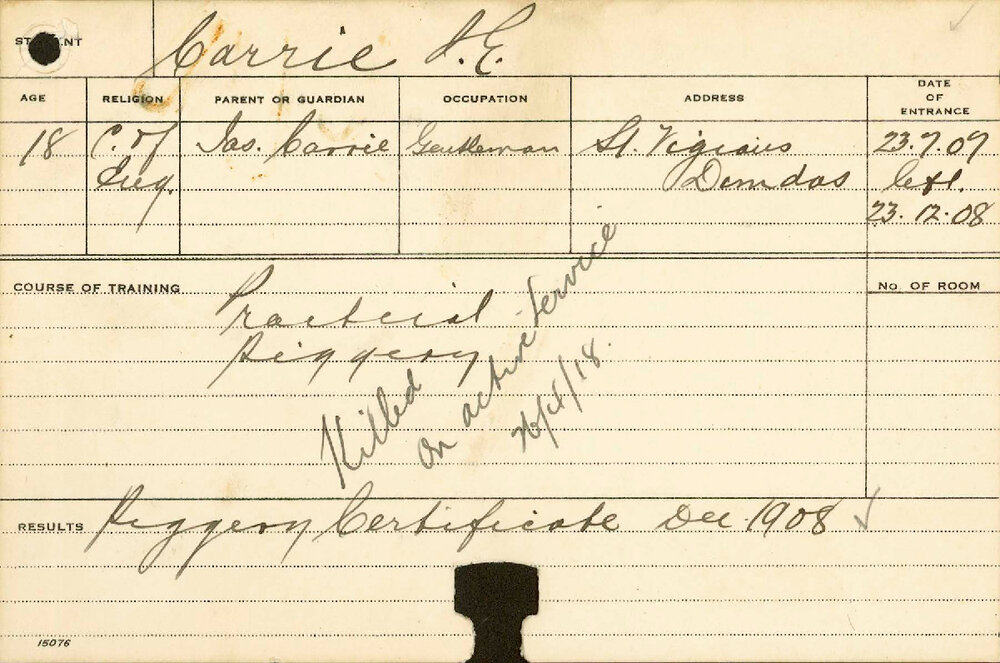 STUDENT Carrie J.E.
AGE RELIGION PARENT OR GUARDIAN OCCUPATION ADDRESS DATE OF ENTRANCE
18 C. of Jas. Carrie Gentleman St. Vigians 23.7.07
Eng. Dundas left.
23.12.08
COURSE OF TRAINING No. OF ROOM
Practical
Piggery
Killed
on active service
26/4/18.
RESULTS Piggery Certificate Dec 1908
15076